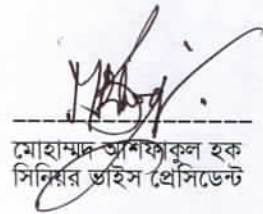 মোহাম্মদ আশফাকুল হক
সিনিয়র ভাইস প্রেসিডেন্ট